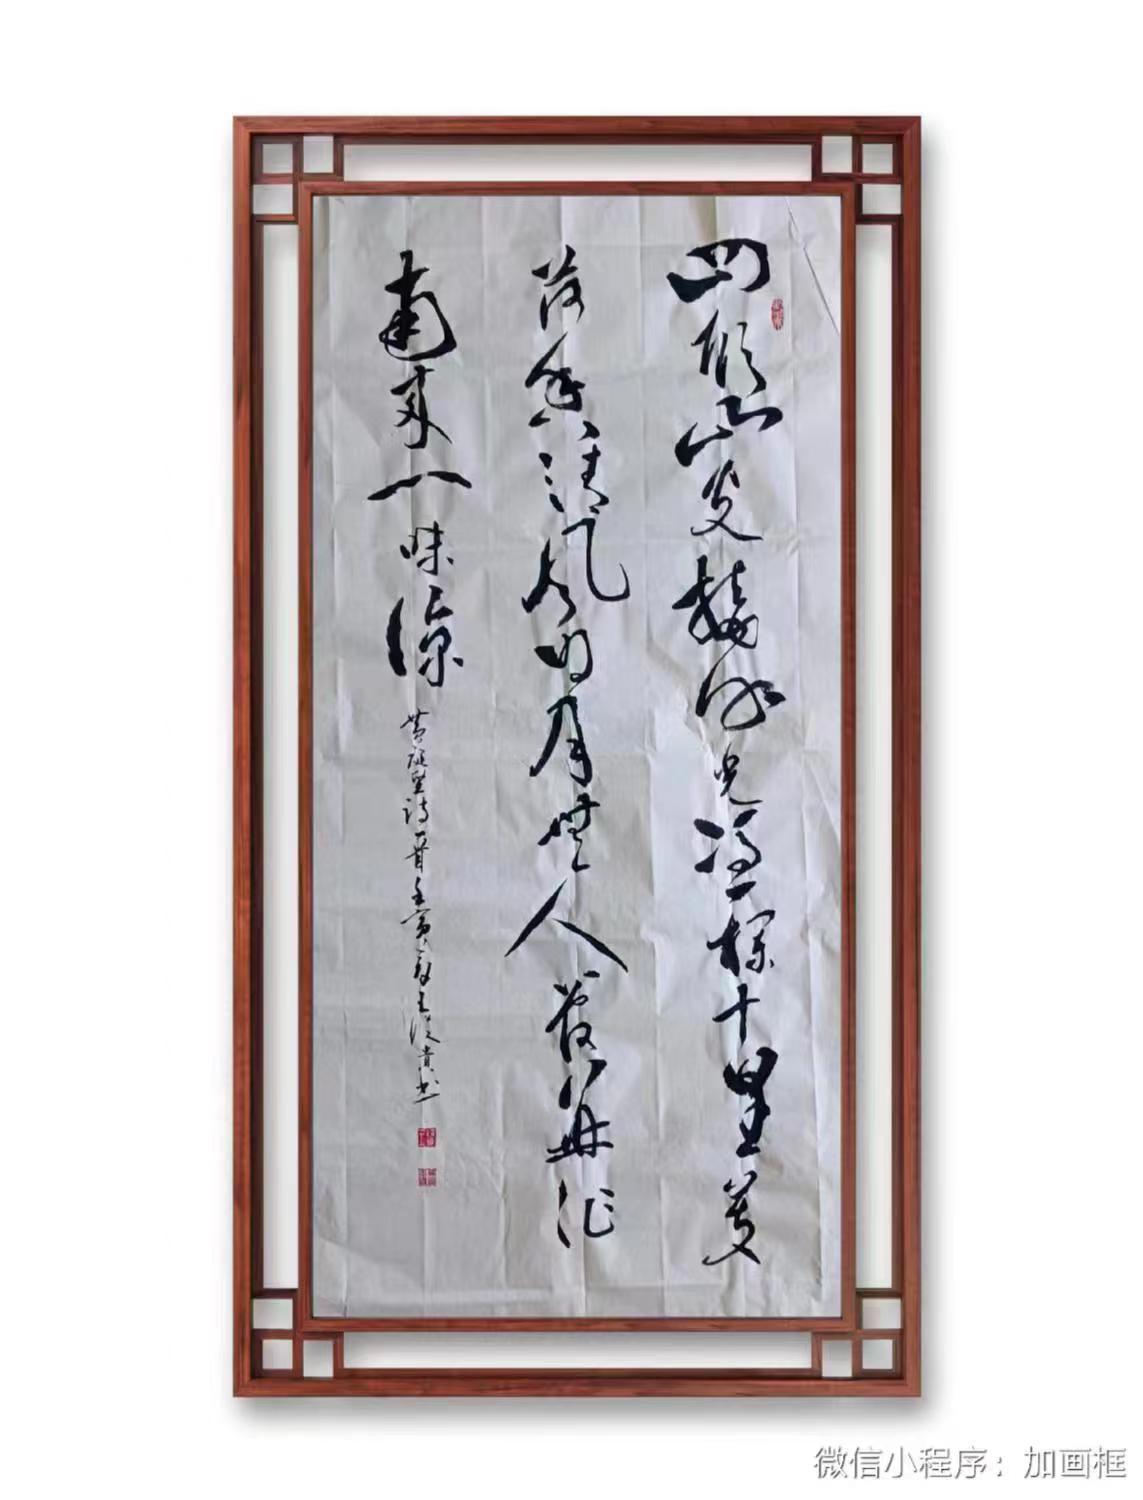 四顾山光接水光凭栏十里芰
荷香清风明月无人管并作
南来一味凉
黄庭坚诗一首壬寅年王汉贵书
微信小程序：加画框